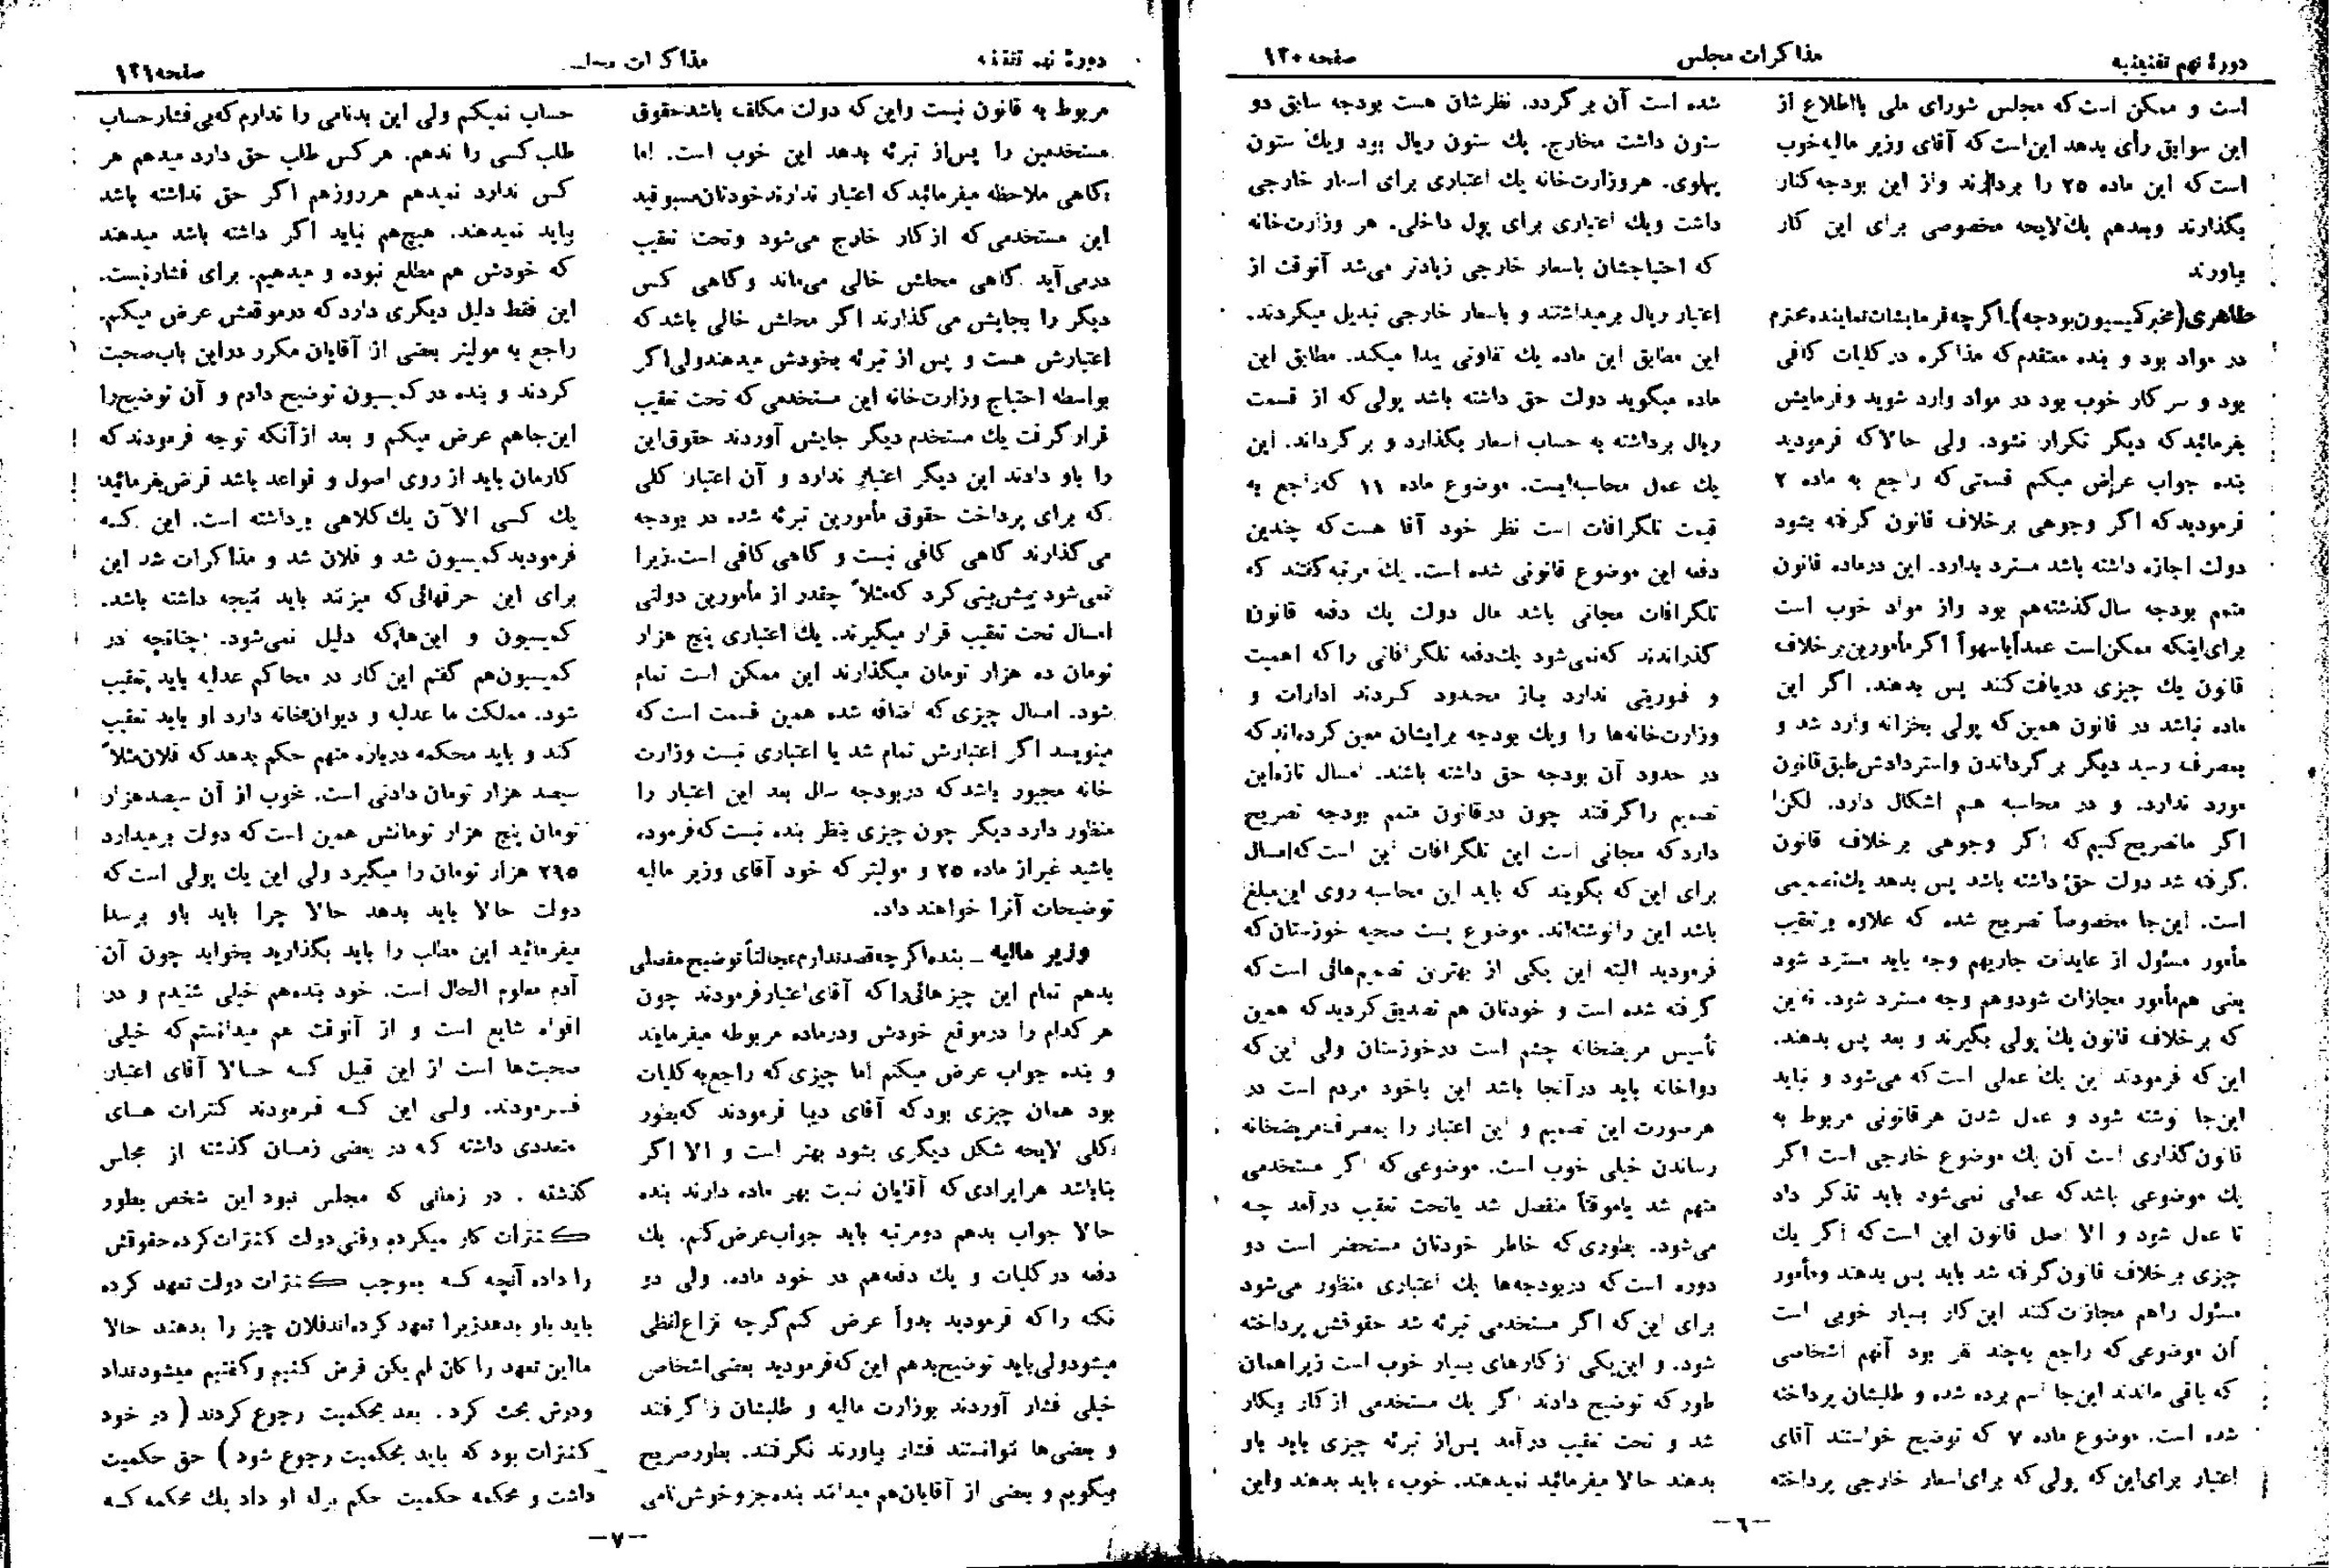 دورهٔ نهم تقنینیه
مذاکرات مجلس
صفحه ۱۲۰
است و ممکن است که مجلس شورای ملی بااطلاع از
این سوابق رأی بدهد این‌است که آقای وزیر مالیه‌خوب
است‌که این ماده ۲۵ را بردارند واز این بودجه‌کنار
بگذارند وبعدهم یك‌لایحه مخصوصی برای این کار
بیاورند
طاهری(مخبرکمیسیون‌بودجه)ـ‌اگرچه‌فرمایشات‌نماینده‌محترم
در مواد بود و بنده معتقدم‌که مذاکره درکلیات کافی
بود و سرکار خوب بود در مواد وارد شوید وفرمایش
بفرمائیدکه دیگر تکرار نشود. ولی حالاکه فرمودید
بنده جواب عرض میکنم قسمتی‌که راجع به ماده ۲
فرمودیدکه اگر وجوهی برخلاف قانون گرفته بشود
دولت اجازه داشته باشد مسترد بدارد. این درماده قانون
متمم بودجه سال‌گذشته‌هم بود واز مواد خوب است
برای‌اینکه ممکن‌است عمدأیاسهوأ اگرمأمورین‌برخلاف
قانون یك چیزی دریافت‌کنند پس بدهند. اگر این
ماده نباشد در قانون همین‌که پولی بخزانه وارد شد و
بمصرف رسید دیگر برگرداندن واستردادش‌طبق‌قانون
مورد ندارد. و در محاسبه هم اشکال دارد. لکن
اگر ماتصریح‌کنیم‌که اگر وجوهی برخلاف قانون
گرفته شد دولت حق داشته باشد پس بدهد یك‌تصمیمی
است. این‌جا مخصوصاً تصریح شده که علاوه برتعقیب
مأمور مسئول از عایدات جاریهم وجه باید مسترد شود
یعنی هم‌مأمور مجازات شودوهم وجه مسترد شود. نه‌این
که برخلاف قانون یك پولی بگیرند و بعد پس بدهند.
این‌که فرمودند این یك عملی است‌که می‌شود و نباید
این‌جا نوشته شود و عمل شدن هرقانونی مربوط به
قانون‌گذاری است آن یك موضوع خارجی است اگر
یك موضوعی باشدکه عملی نمی‌شود باید تذکر داد
تا عمل شود و الا اصل قانون این است‌که اگر یك
چیزی برخلاف قانون‌گرفته شد باید پس بدهند ومأمور
مسئول راهم مجازات‌کنند این‌کار بسیار خوبی است
آن موضوعی‌که راجع به‌چند نفر بود آنهم اشخاصی
که باقی ماندند این‌جا اسم برده شده و طلبشان پرداخته
شده است. موضوع ماده ۷ که توضیح خواستند آقای
اعتبار برای‌این‌که پولی که برای‌اسعار خارجی پرداخته
شده است آن برگردد. نظرشان هست بودجه سابق دو
ستون داشت مخارج. یك ستون ریال بود ویك ستون
پهلوی. هروزارت‌خانه یك اعتباری برای اسعار خارجی
داشت ویك اعتباری برای پول داخلی. هر وزارت‌خانه
که احتیاجشان باسعار خارجی زیادتر می‌شد آنوقت از
اعتبار ریال برمیداشتند و باسعار خارجی تبدیل میکردند.
این مطابق این ماده یك تفاوتی پیدا میکند. مطابق این
ماده میگوید دولت حق داشته باشد پولی‌که از قسمت
ریال برداشته به حساب اسعار بگذارد و برگرداند. این
یك عمل محاسبه‌ایست. موضوع ماده ۱۱ که‌راجع به
قیمت تلگرافات است نظر خود آقا هست‌که چندین
دفعه این موضوع قانونی شده است. یك مرتبه‌گفتند که
تلگرافات مجانی باشد مال دولت یك دفعه قانون
گذراندند که‌نمی‌شود یك‌دفعه تلگرافاتی راکه اهمیت
و فوریتی ندارد باز محدود کردند ادارات و
وزارت‌خانه‌ها را ویك بودجه برایشان معین‌کرده‌اندکه
در حدود آن بودجه حق داشته باشند. امسال تازه‌این
تصمیم راگرفتند چون درقانون متمم بودجه تصریح
داردکه مجانی است این تلگرافات این است‌که‌امسال
برای این‌که بگویند که باید این محاسبه روی این‌مبلغ
باشد این رانوشته‌اند. موضوع پست صحیه خوزستان‌که
فرمودید البته این یکی از بهترین تصمیم‌هائی است‌که
گرفته شده است و خودتان هم تصدیق‌کردیدکه همین
تأسیس مریضخانه چشم است درخوزستان ولی این‌که
دواخانه باید درآنجا باشد این باخود مردم است در
هرصورت این تصمیم و این اعتبار را بمصرف‌مریضخانه
رساندن خیلی خوب است. موضوعی‌که اگر مستخدمی
متهم شد یاموقتاً منفصل شد یاتحت تعقیب درآمد چه
می‌شود. بطوری‌که خاطر خودتان مستحضر است دو
دوره است‌که دربودجه‌ها یك اعتباری منظور می‌شود
برای این‌که اگر مستخدمی تبرئه شد حقوقش پرداخته
شود. و این‌یکی ازکارهای بسیار خوب است زیراهمان
طورکه توضیح دادند اگر یك مستخدمی ازکار بیکار
شد و تحت تعقیب درآمد پس‌از تبرئه چیزی باید باو
بدهند حالا میفرمائید نمیدهند. خوب، باید بدهند واین
ـ٦ـ
دورهٔ نهم تقنینیه
مذاکرات مجلس
صفحه ۱۲۱
مربوط به قانون نیست واین‌که دولت مکلف باشدحقوق
مستخدمین را پس‌از تبرئه بدهد این خوب است. اما
گاهی ملاحظه میفرمائیدکه اعتبار ندارند خودتان‌مسبوقید
این مستخدمی‌که ازکار خارج می‌شود وتحت تعقیب
درمی‌آید گاهی محلش خالی می‌ماند وگاهی کس
دیگر را بجایش می‌گذارند اگر محلش خالی باشدکه
اعتبارش هست و پس از تبرئه بخودش میدهندولی‌اگر
بواسطه احتیاج وزارت‌خانه این مستخدمی‌که تحت تعقیب
قرارگرفت یك مستخدم دیگر جایش آوردند حقوق‌این
را باو دادند این دیگر اعتبار ندارد و آن اعتبار کلی
که برای پرداخت حقوق مأمورین تبرئه شده در بودجه
می‌گذارند گاهی کافی نیست و گاهی‌کافی است.زیرا
نمی‌شود پیش‌بینی‌کرد که‌مثلاً چقدر از مأمورین دولتی
امسال تحت تعقیب قرار میگیرند. یك اعتباری پنج هزار
تومان ده هزار تومان میگذارند این ممکن است تمام
شود. امسال چیزی‌که اضافه شده همین قسمت است‌که
مینویسد اگر اعتبارش تمام شد یا اعتباری نیست وزارت
خانه مجبور باشدکه دربودجه سال بعد این اعتبار را
منظور دارد دیگر چون چیزی بنظر بنده نیست‌که‌فرموده
باشید غیراز ماده ۲۵ و مولیترکه خود آقای وزیر مالیه
توضیحات آنرا خواهند داد.
وزیر مالیه ـ بنده‌اگرچه‌قصدندارم‌عجالتاً توضیح‌مفصلی
بدهم تمام این چیزهائی‌راکه آقای‌اعتبارفرمودند چون
هرکدام را درموقع خودش ودرماده مربوطه میفرمایند
و بنده جواب عرض میکنم اما چیزی‌که راجع‌به‌کلیات
بود همان چیزی بودکه آقای دیبا فرمودند که‌بطور
کلی لایحه شکل دیگری بشود بهتر است و الا اگر
بناباشد هرایرادی‌که آقایان نسبت بهر ماده دارند بنده
حالا جواب بدهم دومرتبه باید جواب‌عرض‌کنم. یك
دفعه درکلیات و یك دفعه‌هم در خود ماده. ولی دو
نکته راکه فرمودید بدواً عرض کنم‌گرچه نزاع‌لفظی
میشودولی‌باید توضیح‌بدهم این‌که‌فرمودید بعضی‌اشخاص
خیلی فشار آوردند بوزارت مالیه و طلبشان راگرفتند
و بعضی‌ها نتوانستند فشار بیاورند نگرفتند. بطورصریح
میگویم و بعضی از آقایان‌هم میدانند بنده‌جزوخوش‌نامی
حساب نمیکنم ولی این بدنامی را ندارم که‌بی‌فشارحساب
طلب‌کسی را ندهم. هرکس طلب حق دارد میدهم هر
کس ندارد نمیدهم هرروزهم اگر حق نداشته باشد
بیاید نمیدهند. هیچ‌هم نیاید اگر داشته باشد میدهند
که خودش هم مطلع نبوده و میدهیم. برای فشارنیست.
این فقط دلیل دیگری داردکه درموقعش عرض میکنم.
راجع به مولیتر بعضی از آقایان مکرر دراین باب‌صحبت
کردند و بنده درکمیسیون توضیح دادم و آن توضیح‌را
این‌جاهم عرض میکنم و بعد ازآنکه توجه فرمودندکه
کارمان باید از روی اصول و قواعد باشد فرض‌بفرمائید
یك کسی الآن یك‌کلاهی برداشته است. این که
فرمودیدکمیسیون شد و فلان شد و مذاکرات شد این
برای این حرفهائی‌که میزنند باید نتیجه داشته باشد.
کمیسیون و این‌هاکه دلیل نمی‌شود. چنانچه در
کمیسیون‌هم گفتم این‌کار در محاکم عدلیه باید تعقیب
شود. مملکت ما عدلیه و دیوان‌خانه دارد او باید تعقیب
کند و باید محکمه درباره متهم حکم بدهدکه فلان‌مثلاً
سیصد هزار تومان دادنی است. خوب از آن سیصدهزار
تومان پنج هزار تومانش همین است‌که دولت برمیدارد
۲۹۵ هزار تومان را میگیرد ولی این یك پولی است‌که
دولت حالا باید بدهد حالا چرا باید باو برسد
میفرمائید این مطلب را باید بگذارید بخوابد چون آن
آدم معلوم الحال است. خود بنده‌هم خیلی شنیدم و در
افواه شایع است و از آنوقت هم میدانستم‌که خیلی
صحبت‌ها است از این قبیل که حالا آقای اعتبار
فرمودند. ولی این که فرمودند کنترات های
متعددی داشته که در بعضی زمان گذشته از مجلس
گذشته . در زمانی که مجلس نبود این شخص بطور
کنترات کار میکرده وقتی‌دولت کنترات‌کرده‌حقوقش
را داده آنچه که بموجب کنترات دولت تعهد کرده
باید باو بدهدزیرا تعهد کرده‌اندفلان چیز را بدهند حالا
مااین تعهد را کان لم یکن فرض کنیم وگفتیم میشودنداد
ودرش بحث کرد . بعد بحکمیت رجوع‌کردند (در خود
کنترات بود که باید بحکمیت رجوع شود) حق حکمیت
داشت و محکمه حکمیت حکم برله او داد یك محکمه که
ـ۷ـ